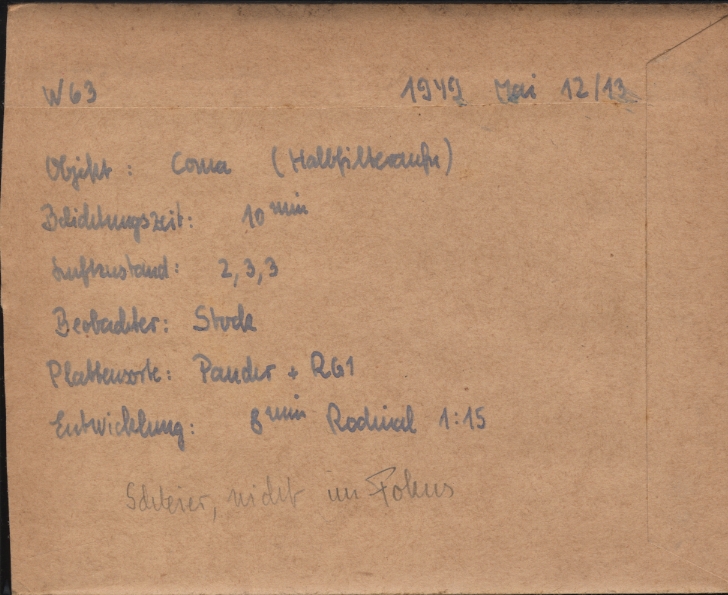 W63 1949 Mai 12/13
Objekt: Coma (Halbfilteraufn)
Belichtungszeit: 10 min
Luftzustand: 2,3,3
Beobachter: Stock
Plattensorte: Pander + RG1
Entwicklung: 8 min Rodinal 1:15
Schleier, nicht im Fokus